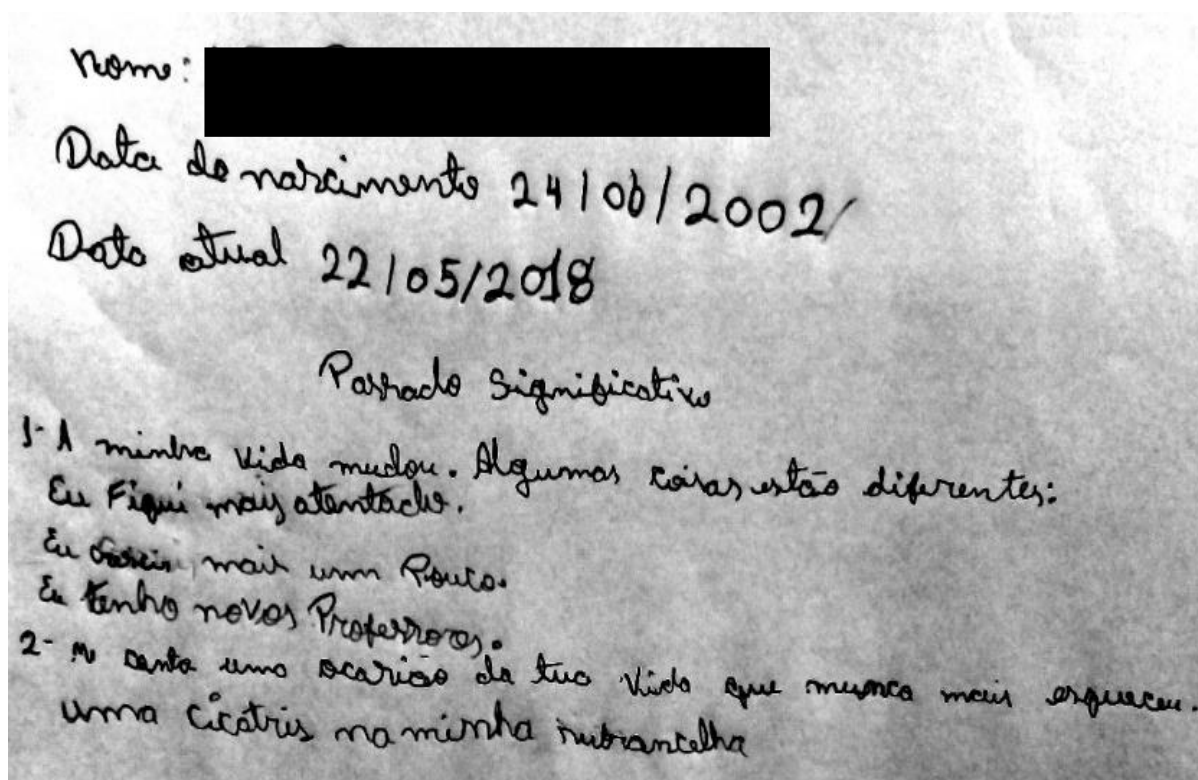 nome:
Data de nascimento 24/06/2002
Data atual 22/05/2018
Passado Significativo
1- A minha vida mudou. Algumas coisas estão diferentes:
Eu Fiqui mais atentado.
Eu mais um Pouco.
Eu tenho novos Professores.
2- conta uma ocasião da tua vida que nunca mais esqueceu.
uma cicatris na minha subrancelha